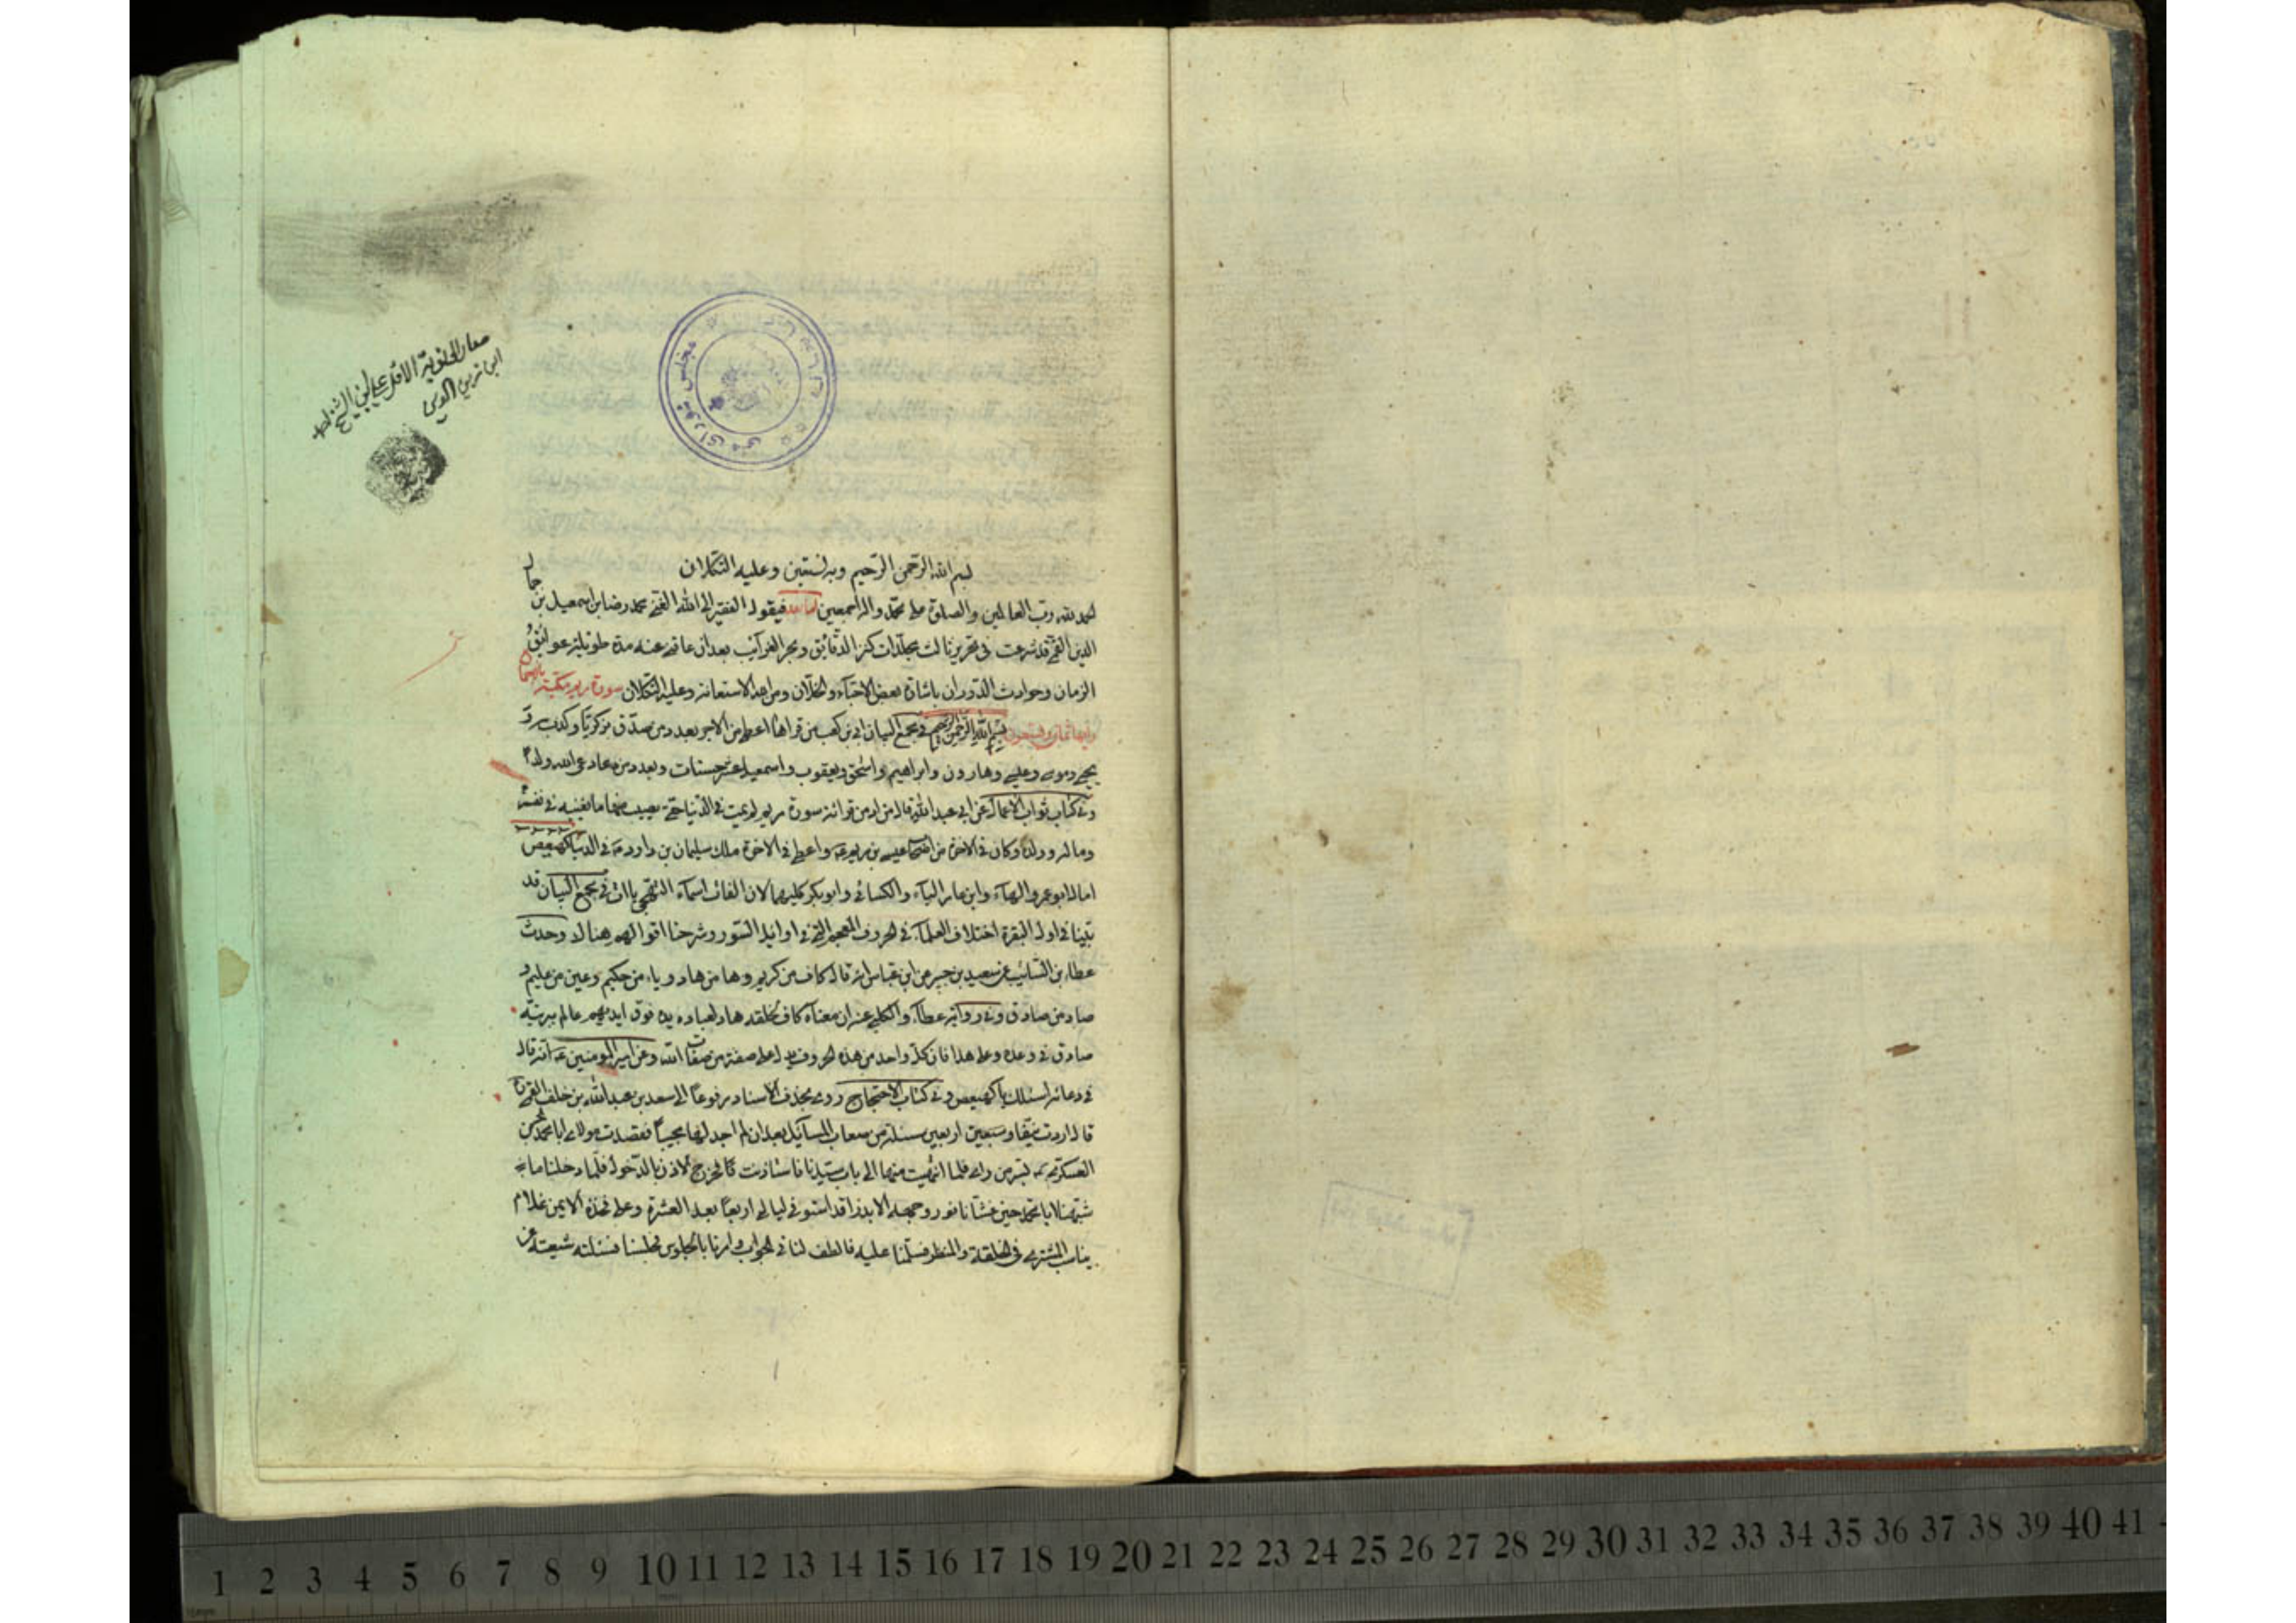 بسم الله الرحمن الرحيم وبه نستعين وعليه التكلان
الحمد لله رب العالمين والصلوة على محمد واله اجمعين اما بعد فيقول الفقير الى الله الغني محمد رضا بن اسمعيل بن جمال
الدين القمي قد شرعت في تحرير ثالث مجلدات كنز الدقائق وبحر الغرائب بعد ان عاقني عنه مدة طويلة عوائق
الزمان وحوادث الدوران باشارة بعض الاحباء والخلان ومن الله الاستعانة وعليه التكلان سورة مريم مكية
وايها ثمان وتسعون بسم الله الرحمن الرحيم في مجمع البيان ابي بن كعب من قراها اعطي من الاجر بعدد من صدق بزكريا وكذب به و
يحيى وموسى وعيسى وهارون وابراهيم واسحق ويعقوب واسمعيل عشر حسنات وبعدد من دعا لله ولدا
وفي كتاب ثواب الاعمال عن ابي عبد الله قال من ادمن قرائة سورة مريم لم يمت في الدنيا حتى يصيب منها ما يغنيه في نفسه
وماله وولده وكان في الاخرة من اصحاب عيسى بن مريم ع واعطي في الاخرة ملك سليمان بن داود ع في الدنيا كهيعص
امال ابو عمرو الهاء وابن عامر الياء والكسائي وابو بكر كليهما لان الفات اسماء التهجي ياات في مجمع البيان قد
بينا في اول البقرة اختلاف العلماء في الحروف المعجم التي في اوايل السور وشرحنا اقوالهم هنالك وحدث
عطاء بن السائب عن سعيد بن جبير عن ابن عباس انه قال كاف من كريم وها من هاد وياء من حكيم وعين من عليم و
صاد من صادق وفي رواية عطاء والكلبي عنه ان معناه كاف لخلقه هاد لعباده يده فوق ايديهم عالم ببريته
صادق في وعده وعلى هذا فان كل واحد من هذه الحروف يدل على صفة من صفات الله وعن امير المؤمنين ع انه قال
في دعائه اسئلك يا كهيعص وفي كتاب الاحتجاج روى بحذف الاسناد مرفوعا الى سعد بن عبد الله بن خلف القمي
قال اردت نيفا و اربعين مسئلة من صعاب المسائل بعد ان لم اجد لها مجيبا فقصدت مولاي ابا محمد الحسن
العسكري ع بسر من راى فلما انتهيت منها الى باب سيدنا فاستاذنت فخرج الاذن بالدخول فلما دخلنا ما
شبهنا ابا محمد حين غشانا نور وجهه الا بدرا قد استوفى ليالي اربعا بعد العشرة وعلى فخذه الايمن غلام
يناسب المشتري في الخلقة والمنظر فسلمنا عليه فالطف لنا في الجواب وامرنا بالجلوس فجلسنا فسئلته شيعته عن
مجلس شورای ملی
1 2 3 4 5 6 7 8 9 10 11 12 13 14 15 16 17 18 19 20 21 22 23 24 25 26 27 28 29 30 31 32 33 34 35 36 37 38 39 40 41